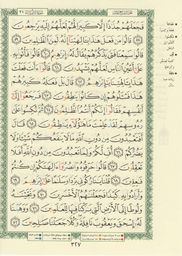 فَجَعَلَهُمْ جُذَٰذًا إِلَّا كَبِيرًا لَّهُمْ لَعَلَّهُمْ إِلَيْهِ يَرْجِعُونَ
٥٨ قَالُوا۟ مَن فَعَلَ هَٰذَا بِـَٔالِهَتِنَآ إِنَّهُۥ لَمِنَ ٱلظَّٰلِمِينَ ٥٩
قَالُوا۟ سَمِعْنَا فَتًى يَذْكُرُهُمْ يُقَالُ لَهُۥٓ إِبْرَٰهِيمُ ٦٠ قَالُوا۟ فَأْتُوا۟
بِهِۦ عَلَىٰٓ أَعْيُنِ ٱلنَّاسِ لَعَلَّهُمْ يَشْهَدُونَ ٦١ قَالُوٓا۟ ءَأَنتَ فَعَلْتَ
هَٰذَا بِـَٔالِهَتِنَا يَٰٓإِبْرَٰهِيمُ ٦٢ قَالَ بَلْ فَعَلَهُۥ كَبِيرُهُمْ
هَٰذَا فَسْـَٔلُوهُمْ إِن كَانُوا۟ يَنطِقُونَ ٦٣ فَرَجَعُوٓا۟ إِلَىٰٓ
أَنفُسِهِمْ فَقَالُوٓا۟ إِنَّكُمْ أَنتُمُ ٱلظَّٰلِمُونَ ٦٤ ثُمَّ نُكِسُوا۟
عَلَىٰ رُءُوسِهِمْ لَقَدْ عَلِمْتَ مَا هَٰٓؤُلَآءِ يَنطِقُونَ ٦٥ قَالَ
أَفَتَعْبُدُونَ مِن دُونِ ٱللَّهِ مَا لَا يَنفَعُكُمْ شَيْـًٔا وَلَا يَضُرُّكُمْ
٦٦ أُفٍّ لَّكُمْ وَلِمَا تَعْبُدُونَ مِن دُونِ ٱللَّهِ أَفَلَا تَعْقِلُونَ
٦٧ قَالُوا۟ حَرِّقُوهُ وَٱنصُرُوٓا۟ ءَالِهَتَكُمْ إِن كُنتُمْ فَٰعِلِينَ
٦٨ قُلْنَا يَٰنَارُ كُونِى بَرْدًا وَسَلَٰمًا عَلَىٰٓ إِبْرَٰهِيمَ ٦٩
وَأَرَادُوا۟ بِهِۦ كَيْدًا فَجَعَلْنَٰهُمُ ٱلْأَخْسَرِينَ ٧٠ وَنَجَّيْنَٰهُ
وَلُوطًا إِلَى ٱلْأَرْضِ ٱلَّتِى بَٰرَكْنَا فِيهَا لِلْعَٰلَمِينَ ٧١ وَوَهَبْنَا
لَهُۥٓ إِسْحَٰقَ وَيَعْقُوبَ نَافِلَةً وَكُلًّا جَعَلْنَا صَٰلِحِينَ ٧٢
٣٢٧